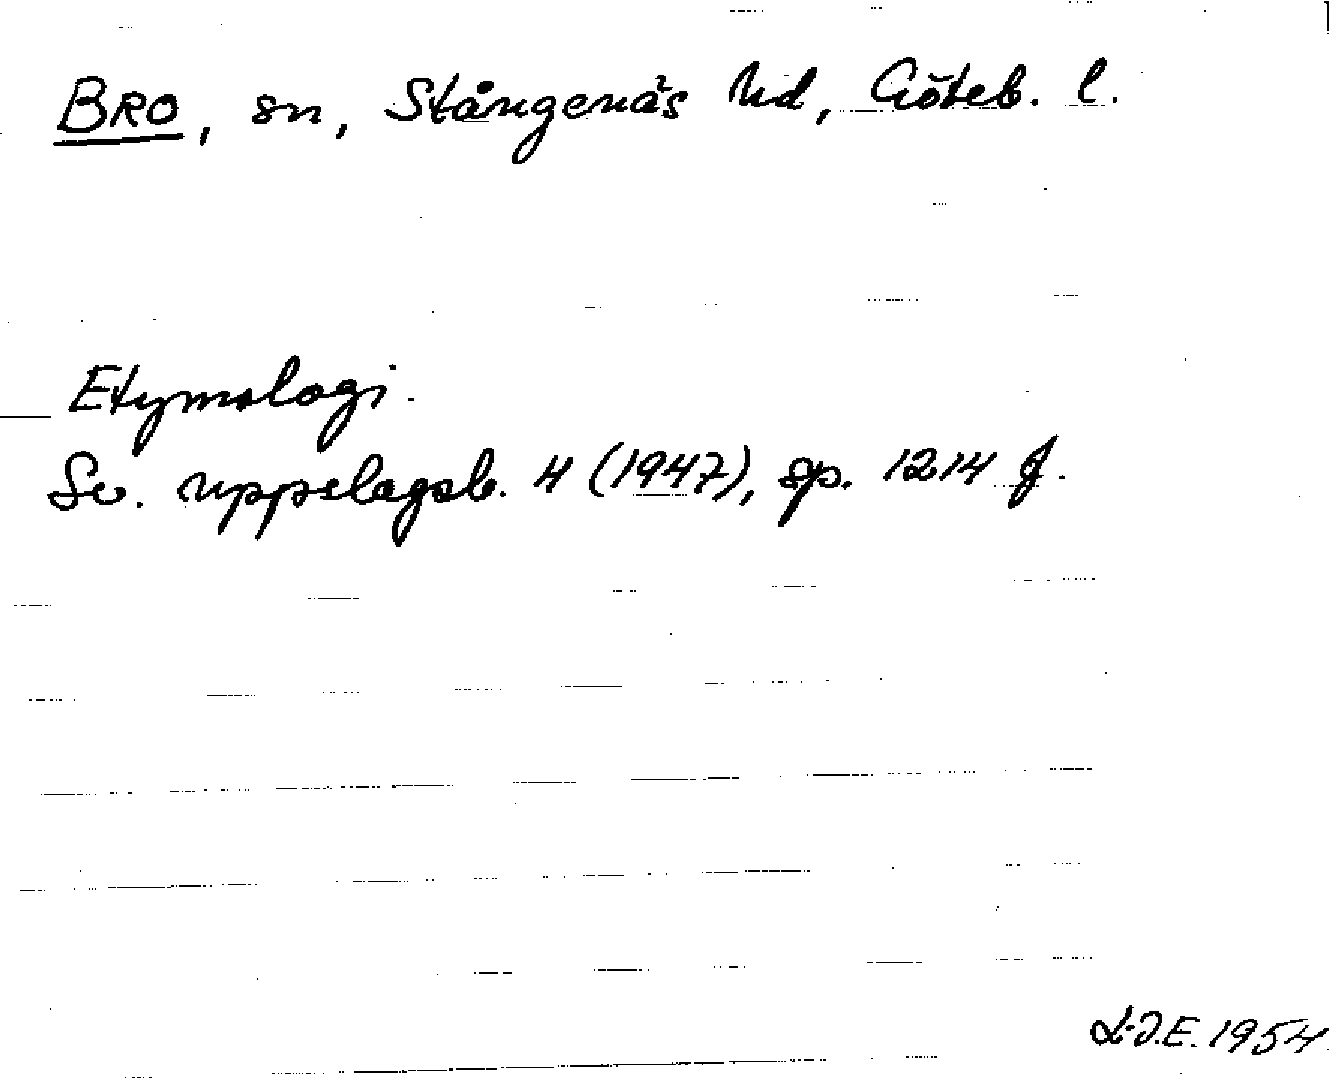 BRO, sn, Stångenäs hd, Göteb. l.
Etymologi.
Sv. uppslagsb. 4 (1947), sp. 1214 f.
L-J.E. 1954